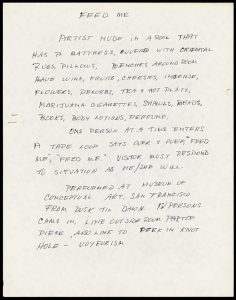 FEED ME
ARTIST NUDE IN A ROOM THAT
HAS A MATTRESS, COVERED WITH ORIENTAL
RUGS, PILLOWS. BENCHES AROUND ROOM
HAVE WINE, FRUITS, CHEESES, INCENSE,
FLOWERS, RECORDS, TEA & HOT PLATE,
MARIJUANA CIGARETTES, SHAWLS, BEADS,
BOOKS, BODY LOTIONS, PERFUME.
ONE PERSON AT A TIME ENTERS
A TAPE LOOP SAYS OVER & OVER, "FEED
ME", "FEED ME." VISITOR MUST RESPOND
TO SITUATION AS HE/SHE WILL.
PERFORMED AT MUSEUM OF
CONCEPTUAL ART, SAN FRANCISCO
FROM DUSK TIL DAWN. PERSONS
CAME IN, LINE OUTSIDE DOOR PART OF
PIECE, AND LINE TO PEEK IN KNOT
HOLE - VOYEURISM